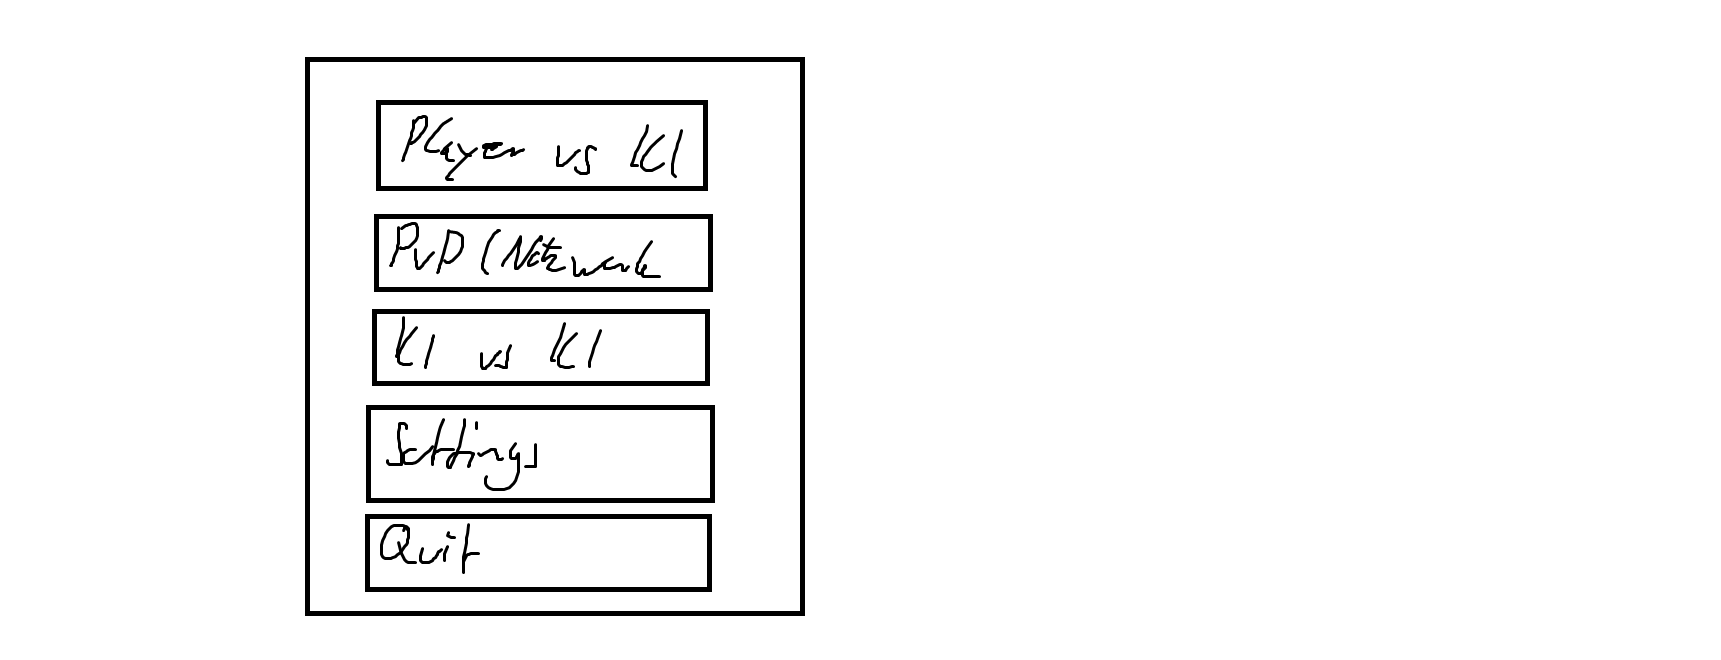 Player vs KI
PvP (Netzwerk
KI vs KI
Settings
Quit